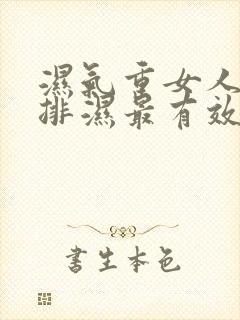 濕氣重女人
排濕最有效
書生本色